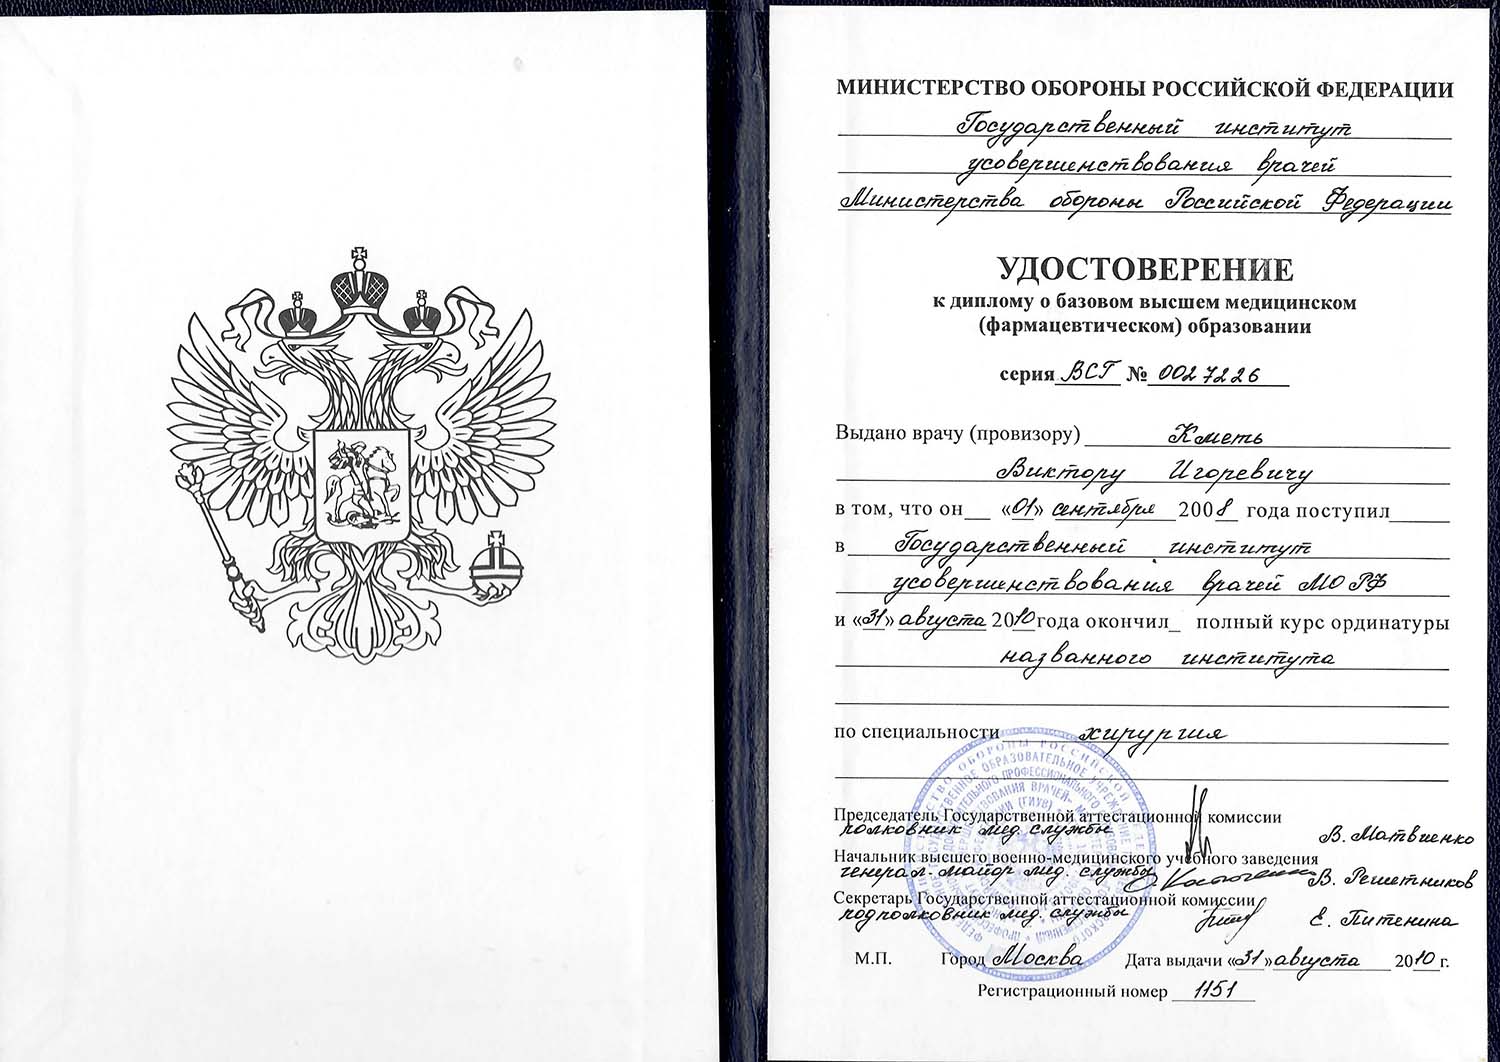 МИНИСТЕРСТВО ОБОРОНЫ РОССИЙСКОЙ ФЕДЕРАЦИИ
Государственный институт
усовершенствования врачей
Министерства обороны Российской Федерации
УДОСТОВЕРЕНИЕ
к диплому о базовом высшем медицинском
(фармацевтическом) образовании
серия ВСГ № 0027226
Выдано врачу (провизору) Кметь
Виктору Игоревичу
в том, что он «01» сентября 2008 года поступил
в Государственный институт
усовершенствования врачей МО РФ
и «31» августа 2010 года окончил полный курс ординатуры
названного института
по специальности хирургия
Председатель Государственной аттестационной комиссии
полковник мед. службы В. Матвиенко
Начальник высшего военно-медицинского учебного заведения
генерал-майор мед. службы В. Решетников
Секретарь Государственной аттестационной комиссии
подполковник мед. службы Е. Питенина
М.П. Город Москва Дата выдачи «31» августа 2010 г.
Регистрационный номер 1151